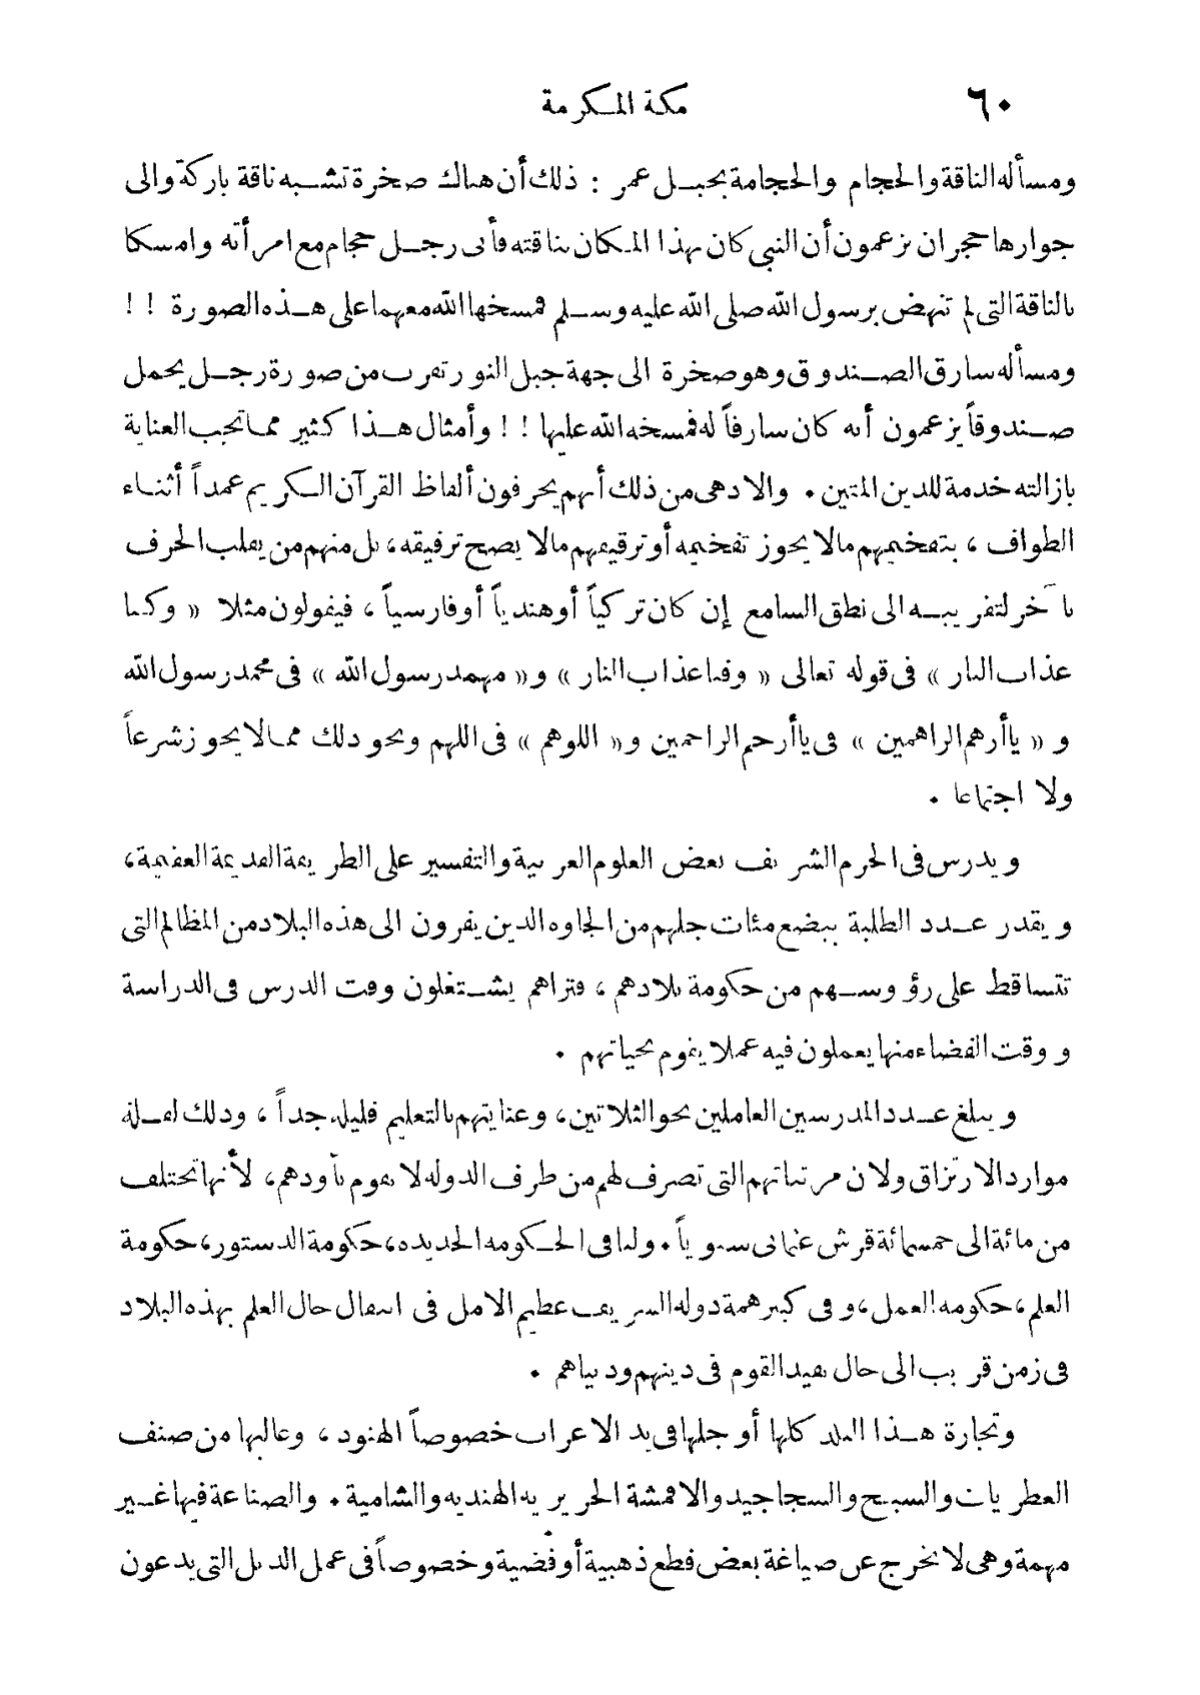 ٦٠ مكة المكرمة
ومسألة الناقة والحجام والحجامة بجبل عمر : ذلك أن هناك صخرة تشبه ناقة باركة والى
جوارها حجران يزعمون أن النبي كان بهذا المكان بناقته فأتى رجل حجام مع امرأته وامسكا
بالناقة التى لم تنهض برسول الله صلى الله عليه وسلم فمسخها الله معهما على هذه الصورة ! !
ومسألة سارق الصندوق وهو صخرة الى جهة جبل النور تقرب من صورة رجل يحمل
صندوقاً يزعمون أنه كان سارقاً له فمسخه الله عليها ! ! وأمثال هذا كثير مما تجب العناية
بازالته خدمة للدين المتين . والادهى من ذلك أنهم يحرفون ألفاظ القرآن الكريم عمداً أثناء
الطواف ، بتفخيمهم مالا يجوز تفخيمه أو ترقيقهم مالا يصح ترقيقه ، بل منهم من يقلب الحرف
بآخر لتقريبه الى نطق السامع إن كان تركياً أو هندياً أو فارسياً ، فيقولون مثلا « وكنا
عذاب النار » فى قوله تعالى « وقنا عذاب النار » و « مهمد رسول الله » فى محمد رسول الله
و « يا أرهم الراهمين » فى يا أرحم الراحمين و « اللوهم » فى اللهم ونحو ذلك مما لا يجوز شرعاً
ولا اجتماعا .
ويدرس فى الحرم الشريف بعض العلوم العربية والتفسير على الطريقة القديمة العقيمة ،
ويقدر عدد الطلبة ببضع مئات جلهم من الجاوه الذين يفرون الى هذه البلاد من المظالم التى
تتساقط على رؤوسهم من حكومة بلادهم ، فتراهم يشتغلون وقت الدرس فى الدراسة
ووقت الفضاء منها يعملون فيه عملا يقوم بحياتهم .
ويبلغ عدد المدرسين العاملين نحو الثلاثين ، وعنايتهم بالتعليم قليلة جداً ، وذلك لقلة
موارد الارتزاق ولان مرتباتهم التى تصرف لهم من طرف الدولة لا تقوم بأودهم ، لأنها تختلف
من مائة الى خمسمائة قرش عثمانى سنوياً . ولنا فى الحكومة الجديدة ، حكومة الدستور ، حكومة
العلم ، حكومة العمل ، وفى كبير همة دولة الشريف عظيم الامل فى انتقال حال العلم بهذه البلاد
فى زمن قريب الى حال يفيد القوم فى دينهم ودنياهم .
وتجارة هذا البلد كلها أو جلها فى يد الاعراب خصوصاً الهنود ، وغالبها من صنف
العطريات والسبح والسجاجيد والاقمشة الحريرية الهندية والشامية . والصناعة فيها غير
مهمة وهى لا تخرج عن صياغة بعض قطع ذهبية أو فضية وخصوصاً فى عمل الدبل التى يدعون